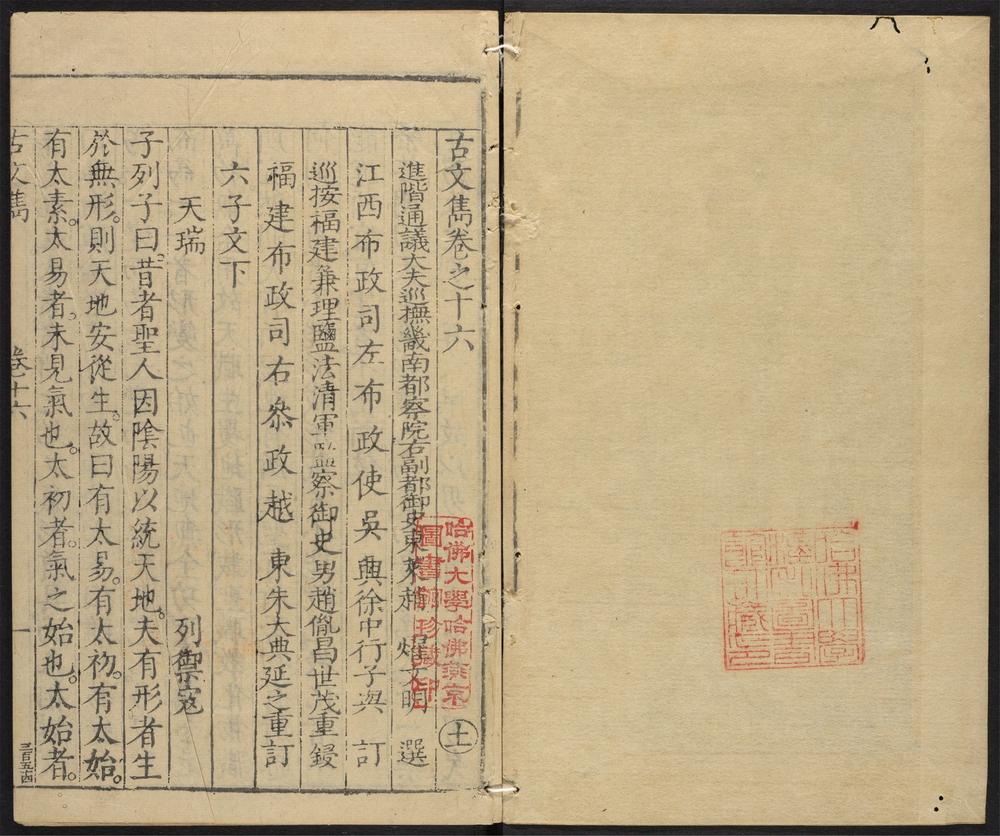 古文雋卷之十六
土
進階通議大夫巡撫畿南都察院右副都御史東萊趙 燿文明 選
江西布政司左布政使吳興徐中行子與 訂
巡按福建兼理鹽法清軍監察御史男趙胤昌世茂重鋟
福建布政司右叅政越 東朱大典延之重訂
六子文下
天瑞 列禦寇
子列子曰。昔者聖人因陰陽以統天地。夫有形者生
於無形。則天地安從生。故曰有太易。有太初。有太始。
有太素。太易者。未見氣也。太初者。氣之始也。太始者。
古文雋 卷十六 一
三百五十四
哈佛大學哈佛燕京
圖書館珍藏印